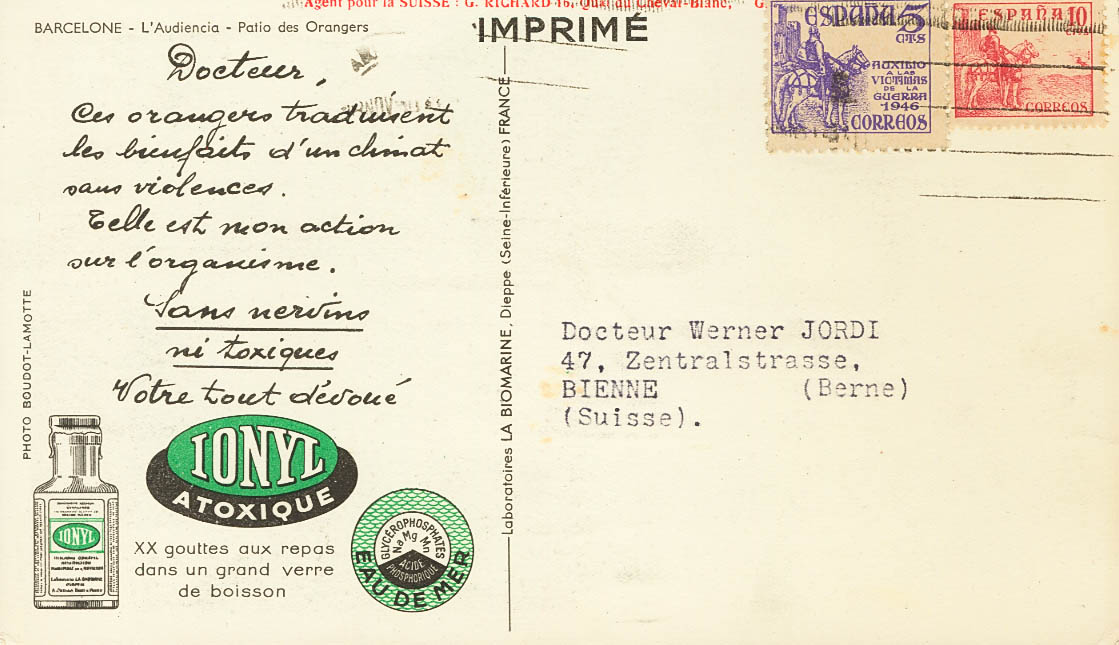 Agent pour la SUISSE : G. RICHARD 16, Quai du Cheval-Blanc,
BARCELONE - L'Audiencia - Patio des Orangers
IMPRIMÉ
Docteur,
Ces orangers traduisent
les bienfaits d'un climat
sans violences.
Telle est mon action
sur l'organisme.
Sans nervins
ni toxiques
Votre tout dévoué
IONYL
ATOXIQUE
XX gouttes aux repas
dans un grand verre
de boisson
IONYL
GLYCÉROPHOSPHATES
Na Mg Mn
ACIDE
PHOSPHORIQUE
EAU DE MER
PHOTO BOUDOT-LAMOTTE
Laboratoires LA BIOMARINE, Dieppe (Seine-Inférieure) FRANCE
ESPAÑA 5
CTS
AUXILIO
A LAS
VICTIMAS
DE LA
GUERRA
1946
CORREOS
ESPAÑA 10
CORREOS
Docteur Werner JORDI
47, Zentralstrasse,
BIENNE (Berne)
(Suisse).